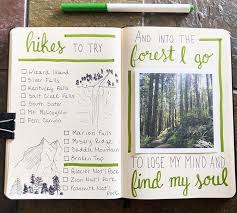 hikes to try
Wizard Island
Silver Falls
Kentucky Falls
Salt Creek Falls
South Sister
Mt. McLoughlin
Fern Canyon
Marion Falls
Misery Ridge
Paddy Mountain
Broken Top
Glacier Nat'l Park
Zion Nat'l Park
Yosemite Nat'l
Park
AND INTO THE
forest I go
TO LOSE MY MIND AND
find my soul